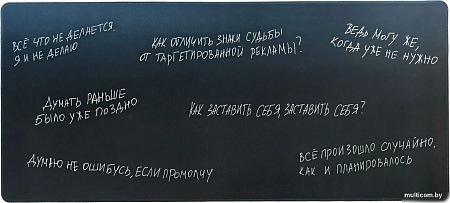 ВСЁ ЧТО НЕ ДЕЛАЕТСЯ,
Я И НЕ ДЕЛАЮ
КАК ОТЛИЧИТЬ ЗНАКИ СУДЬБЫ
ОТ ТАРГЕТИРОВАННОЙ РЕКЛАМЫ?
ВЕДЬ МОГУ ЖЕ,
КОГДА УЖЕ НЕ НУЖНО
ДУМАТЬ РАНЬШЕ
БЫЛО УЖЕ ПОЗДНО
КАК ЗАСТАВИТЬ СЕБЯ, ЗАСТАВИТЬ СЕБЯ?
ДУМАЮ НЕ ОШИБУСЬ, ЕСЛИ ПРОМОЛЧУ
ВСЁ ПРОИЗОШЛО СЛУЧАЙНО,
КАК И ПЛАНИРОВАЛОСЬ
multicom.by